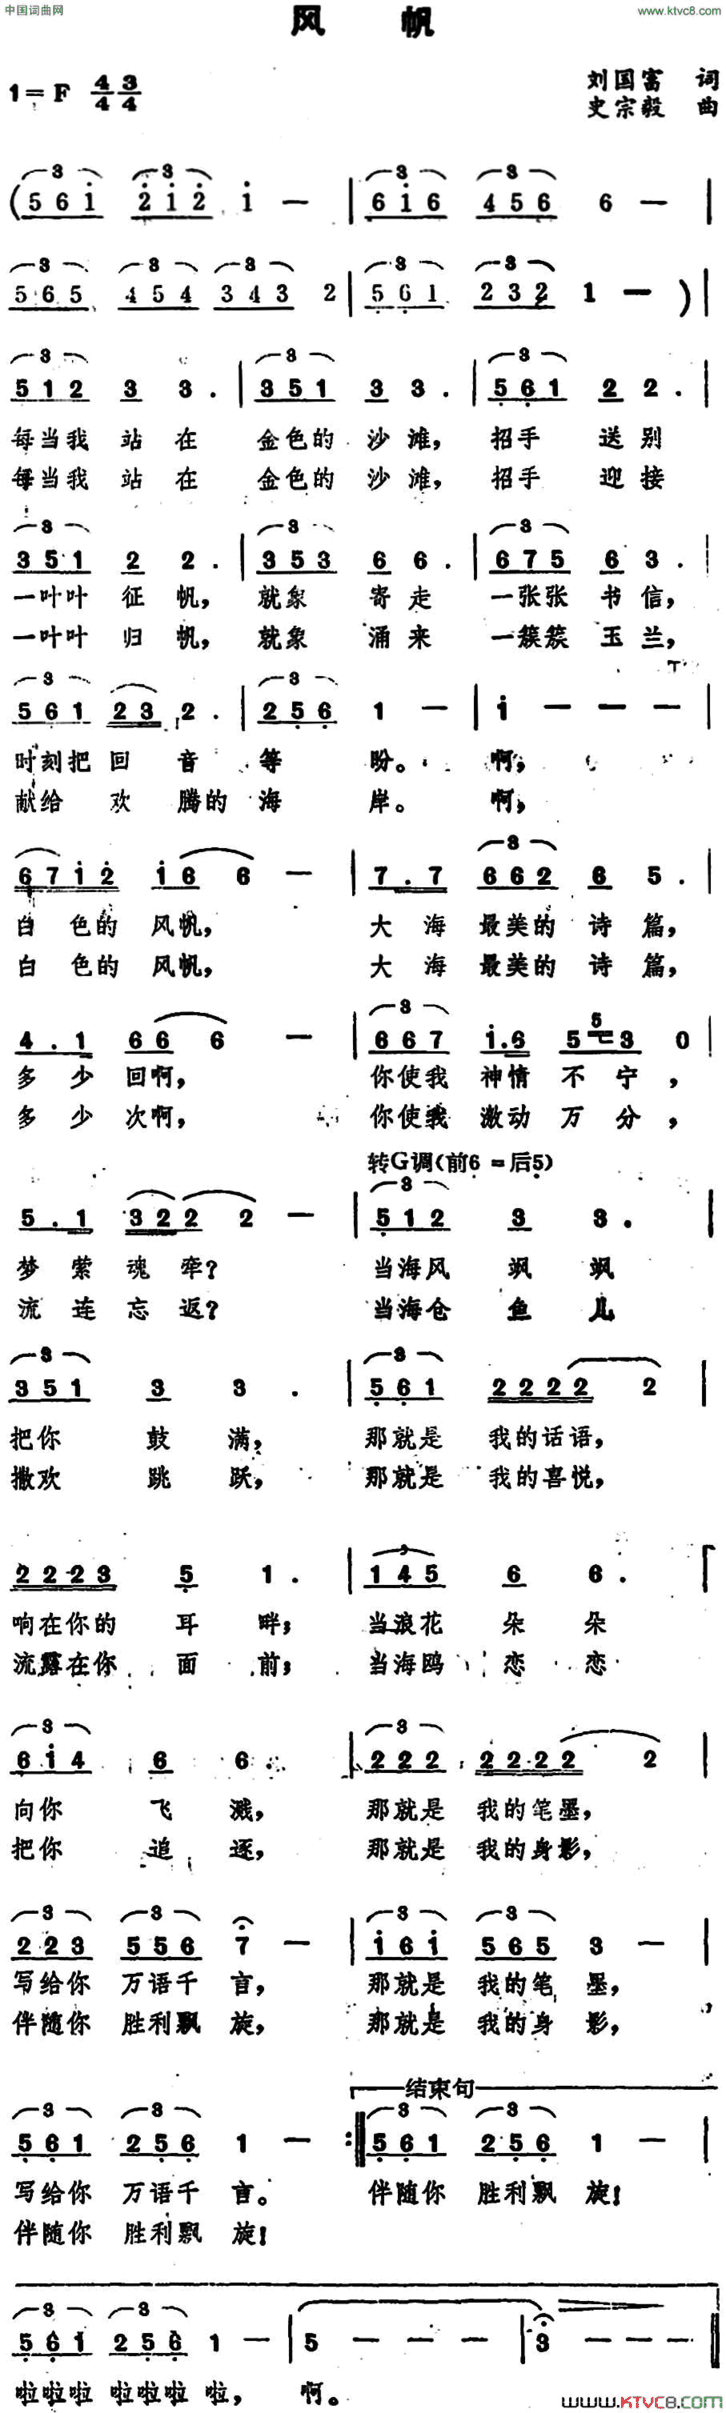 中国词曲网
www.ktvc8.com
风 帆
1=F 4/4 3/4
刘国富 词
史宗毅 曲
(5 6 i 2 i 2 i — | 6 i 6 4 5 6 6 — |
5 6 5 4 5 4 3 4 3 2 | 5 6 1 2 3 2 1 — ) |
5 1 2 3 3. | 3 5 1 3 3. | 5 6 1 2 2. |
每当我 站在 金色的 沙滩, 招手 送别
每当我 站在 金色的 沙滩, 招手 迎接
3 5 1 2 2. | 3 5 3 6 6. | 6 7 5 6 3. |
一叶叶 征帆, 就象 寄走 一张张 书信,
一叶叶 归帆, 就象 涌来 一簇簇 玉兰,
5 6 1 2 3 2. | 2 5 6 1 — | i — — — |
时刻把 回 音 等 盼。 啊,
献给 欢 腾的 海 岸。 啊,
6 7 i 2 i 6 6 — | 7. 7 6 6 2 6 5. |
白 色的 风帆, 大 海 最美的 诗 篇,
白 色的 风帆, 大 海 最美的 诗 篇,
4. 1 6 6 6 — | 6 6 7 i. 6 5 3 0 |
多 少 回啊, 你使我 神情 不 宁,
多 少 次啊, 你使我 激动 万 分,
转G调(前6=后5)
5. 1 3 2 2 2 — | 5 1 2 3 3. |
梦 萦 魂 牵? 当海风 飒 飒
流 连 忘 返? 当海仓 鱼 儿
3 5 1 3 3. | 5 6 1 2 2 2 2 2 |
把你 鼓 满, 那就是 我的话语,
撒欢 跳 跃, 那就是 我的喜悦,
2 2 2 3 5 1. | 1 4 5 6 6. |
响在你的 耳 畔; 当浪花 朵 朵
流露在你 面 前; 当海鸥 恋 恋
6 i 4 6 6. | 2 2 2 2 2 2 2 2 |
向你 飞 溅, 那就是 我的笔墨,
把你 追 逐, 那就是 我的身影,
2 2 3 5 5 6 7 — | i 6 i 5 6 5 3 — |
写给你 万语千 言, 那就是 我的笔 墨,
伴随你 胜利飘 旋, 那就是 我的身 影,
结束句
5 6 1 2 5 6 1 — :‖ 5 6 1 2 5 6 1 — |
写给你 万语千 言。 伴随你 胜利飘 旋!
伴随你 胜利飘 旋!
5 6 1 2 5 6 1 — | 5 — — — | 3 — — — ‖
啦啦啦 啦啦啦 啦, 啊。
www.KTVC8.COM